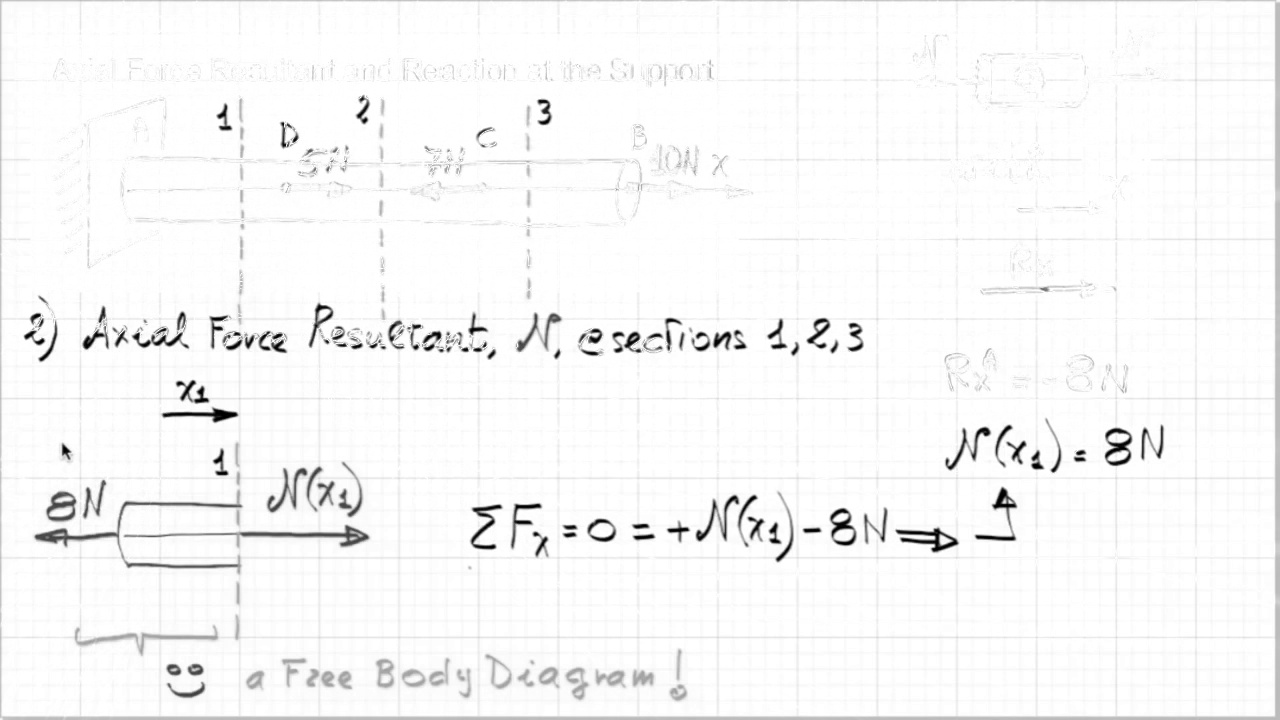 Axial Force Resultant and Reaction at the Support
N N
1 2 3
A D C B
5N 7N 10N x
x
Rx
2) Axial Force Resultant, N, @ sections 1, 2, 3
RxA = -8N
x1
N(x1) = 8N
1
8N N(x1)
ΣFx = 0 = +N(x1) - 8N ⇒
a Free Body Diagram!